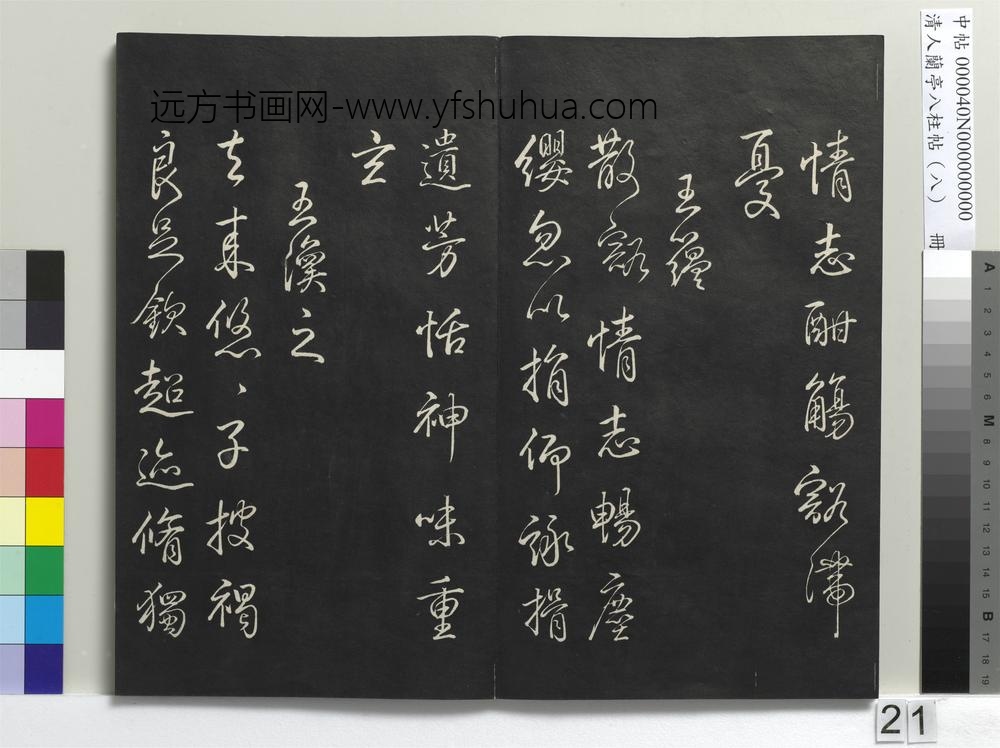 远方书画网-www.yfshuhua.com
中帖 000040N000000000
清人蘭亭八柱帖(八) 冊
情志酣觴豁滯
憂
王蘊
散豁情志暢塵
纓忽以捐仰詠揖
遺芳恬神味重
玄
王渙之
去来悠〻子披褐
良足欽超迹脩獨
A 1 2 3 4 5 6 M 8 9 10 11 12 13 14 15 B 17 18 19
21